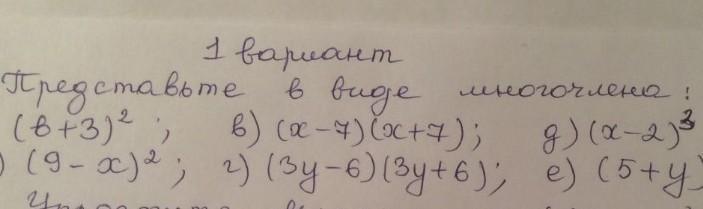 1 вариант
Представьте в виде многочлена:
(в+3)²; в) (x-7)(x+7); д) (x-2)³
) (9-x)²; г) (3y-6)(3y+6); е) (5+y)